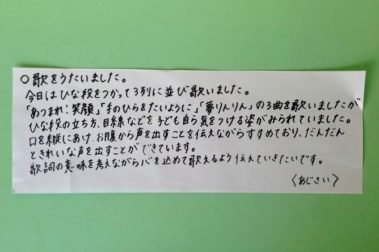 ○歌をうたいました。
今日はひな段をつかって3列に並び歌いました。
「あつまれ!笑顔」「手のひらをたいように」「夢りんりん」の3曲を歌いましたが
ひな段の立ち方、目線などを子ども自ら気をつける姿がみられていました。
口を縦にあけ、お腹から声を出すことを伝えながらすすめており、だんだん
ときれいな声を出すことができています。
歌詞の意味を考えながら心を込めて歌えるよう伝えていきたいです。
〈あじさい〉